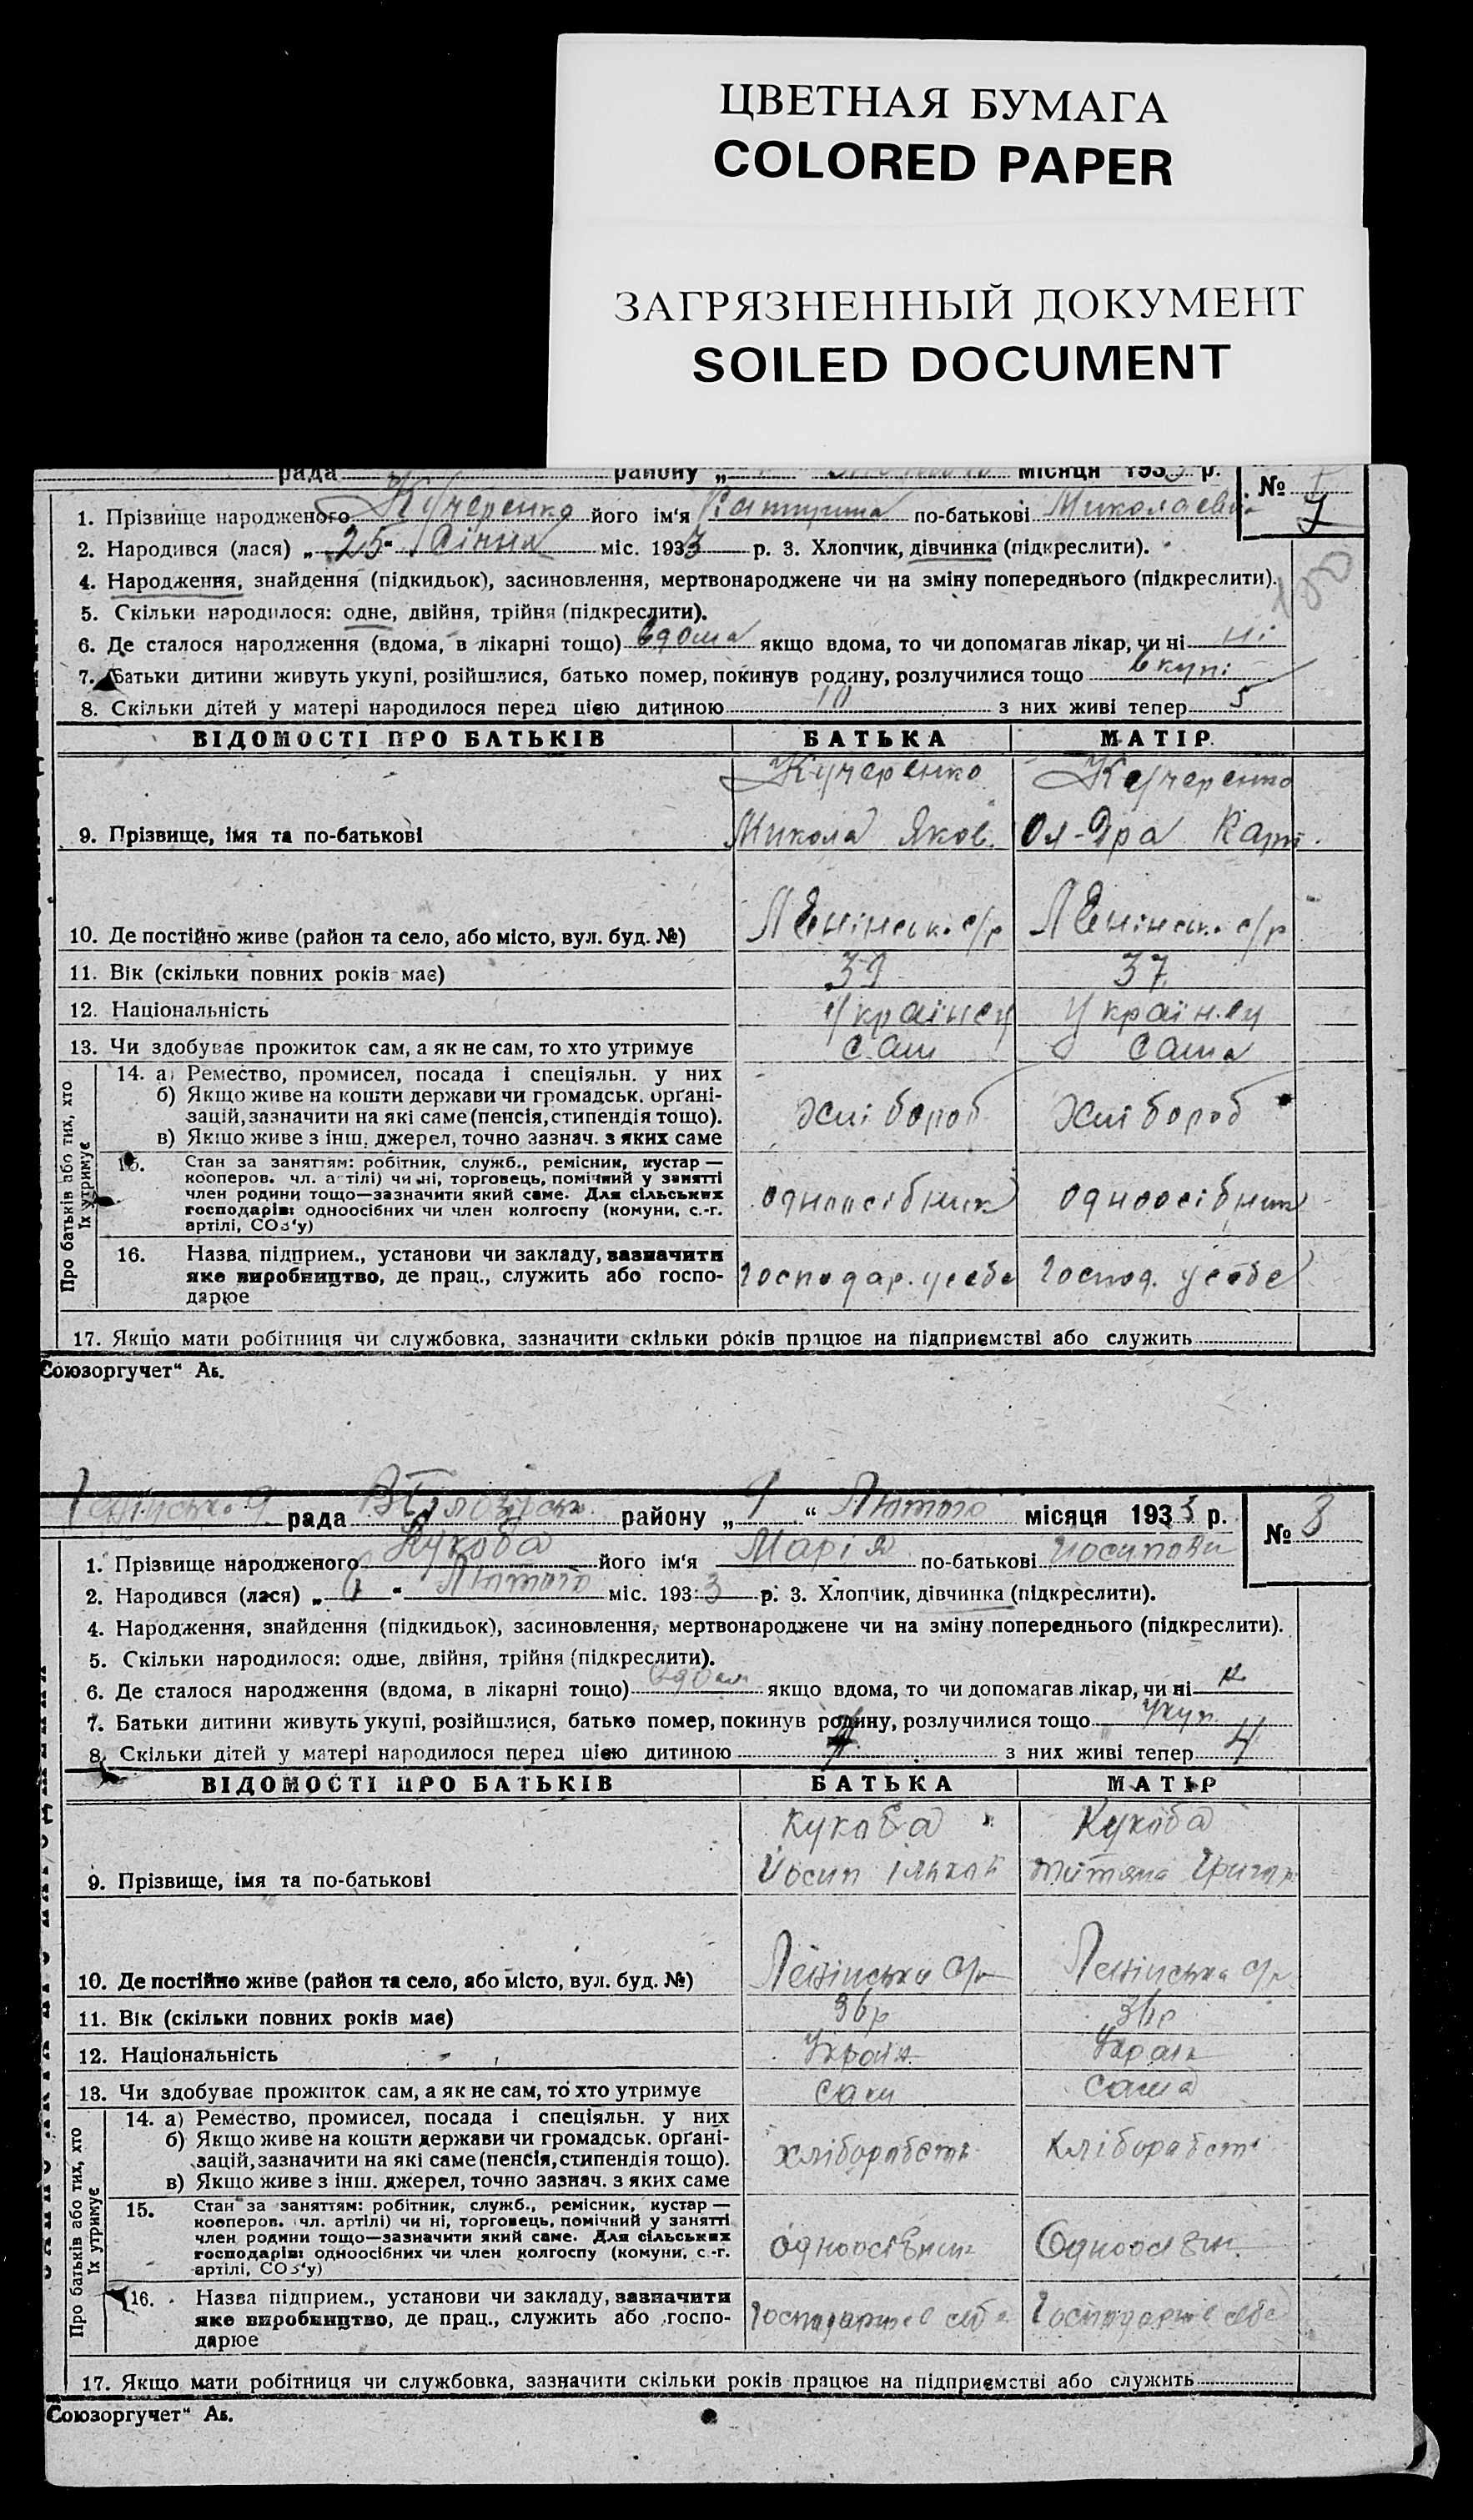 ЦВЕТНАЯ БУМАГА
COLORED PAPER
ЗАГРЯЗНЕННЫЙ ДОКУМЕНТ
SOILED DOCUMENT
рада району „ місяця 193 р. №
7
1. Прізвище народженого Кучеренко його ім'я Катерина по-батькові Миколаевн
2. Народився (лася) „ 25 “ Січня міс. 1933 р. 3. Хлопчик, дівчинка (підкреслити).
4. Народження, знайдення (підкидьок), засиновлення, мертвонароджене чи на зміну попереднього (підкреслити).
5. Скільки народилося: одне, двійня, трійня (підкреслити).
6. Де сталося народження (вдома, в лікарні тощо) вдома якщо вдома, то чи допомагав лікар, чи ні ні
7. Батьки дитини живуть укупі, розійшлися, батько помер, покинув родину, розлучилися тощо вкупі
8. Скільки дітей у матері народилося перед цією дитиною 10 з них живі тепер 5
ВІДОМОСТІ ПРО БАТЬКІВ БАТЬКА МАТІР
Кучеренко Кучеренко
9. Прізвище, імя та по-батькові Микола Яков. Ол-дра Карп.
10. Де постійно живе (район та село, або місто, вул. буд. №) Ленінськ. с/р Ленінськ. с/р
11. Вік (скільки повних років має) 39 37
12. Національність Українец Україн.ец
13. Чи здобуває прожиток сам, а як не сам, то хто утримує сам сама
Про батьків або тих, хто їх утримує
14. а) Ремество, промисел, посада і спеціяльн. у них
б) Якщо живе на кошти держави чи громадськ. орґані-
зацій, зазначити на які саме (пенсія, стипендія тощо). Хлібороб Хлібороб
в) Якщо живе з інш. джерел, точно зазнач. з яких саме
15. Стан за заняттям: робітник, служб., ремісник, кустар —
кооперов. чл. артілі) чи ні, торговець, помічний у занятті
член родини тощо—зазначити який саме. Для сільських одноосібник одноосібник
господарів: одноосібних чи член колгоспу (комуни, с.-г.
артілі, СОЗ'у)
16. Назва підприєм., установи чи закладу, зазначити
яке виробництво, де прац., служить або госпо- Господар. у себе Господ. у себе
дарює
17. Якщо мати робітниця чи службовка, зазначити скільки років працює на підприємстві або служить
Союзоргучет“ Аs.
рада Білозірськ. району „ 9 “ Лютого місяця 1933 р. № 8
1. Прізвище народженого Кукоба його ім'я Марія по-батькові Йосипови
2. Народився (лася) „ “ Лютого міс. 1933 р. 3. Хлопчик, дівчинка (підкреслити).
4. Народження, знайдення (підкидьок), засиновлення, мертвонароджене чи на зміну попереднього (підкреслити).
5. Скільки народилося: одне, двійня, трійня (підкреслити).
6. Де сталося народження (вдома, в лікарні тощо) вдом якщо вдома, то чи допомагав лікар, чи ні
7. Батьки дитини живуть укупі, розійшлися, батько помер, покинув родину, розлучилися тощо укуп.
8. Скільки дітей у матері народилося перед цією дитиною з них живі тепер 4
ВІДОМОСТІ ПРО БАТЬКІВ БАТЬКА МАТІР
Кукоба Кукоба
9. Прізвище, імя та по-батькові Йосип Тітяна Григор
10. Де постійно живе (район та село, або місто, вул. буд. №) Ленінська с/р Ленінська с/р
11. Вік (скільки повних років має) 36р 36р
12. Національність Україн. Україн
13. Чи здобуває прожиток сам, а як не сам, то хто утримує сам сама
Про батьків або тих, хто їх утримує
14. а) Ремество, промисел, посада і спеціяльн. у них
б) Якщо живе на кошти держави чи громадськ. орґані-
зацій, зазначити на які саме (пенсія, стипендія тощо).
в) Якщо живе з інш. джерел, точно зазнач. з яких саме
15. Стан за заняттям: робітник, служб., ремісник, кустар —
кооперов. чл. артілі) чи ні, торговець, помічний у занятті
член родини тощо—зазначити який саме. Для сільських
господарів: одноосібних чи член колгоспу (комуни, с.-г.
артілі, СОЗ'у)
16. Назва підприєм., установи чи закладу, зазначити
яке виробництво, де прац., служить або госпо-
дарює
17. Якщо мати робітниця чи службовка, зазначити скільки років працює на підприємстві або служить
Союзоргучет“ Аs.